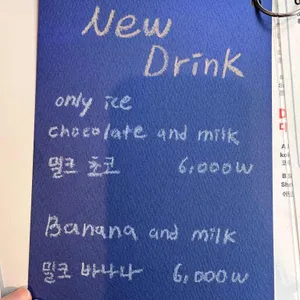 New
Drink
only ice
chocolate and milk
밀크 초코 6,000₩
Banana and milk
밀크 바나나 6,000₩